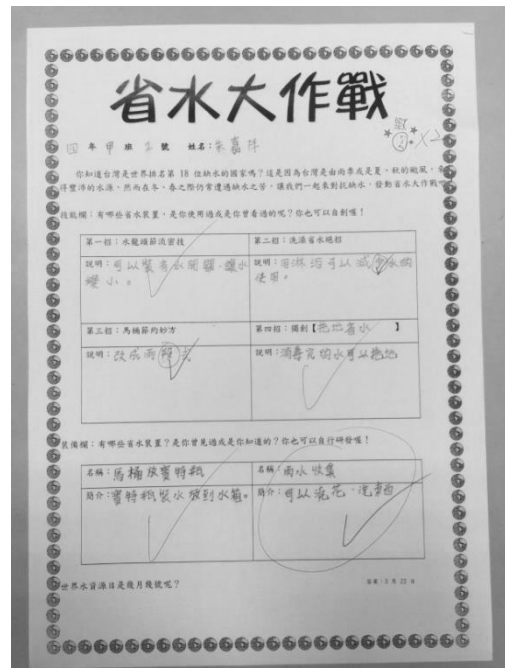 省水大作戰
四 年 甲 班 號 姓名：朱嘉
你知道台灣是世界排名第 18 位缺水的國家嗎？這是因為台灣是由雨季或是夏、秋的颱風，
得豐沛的水源，然而在冬、春之際仍常遭遇缺水之苦，讓我們一起來對抗缺水，發動省水大作戰
技能欄：有哪些省水裝置，是你使用過或是你曾看過的呢？你也可以自創喔！
第一招：水龍頭節流密技
說明：可以裝省水開關，讓水
變小。
第二招：洗澡省水絕招
說明：用淋浴可以減少水的
使用。
第三招：馬桶節約妙方
說明：改成兩段式
第四招：獨創【拖地省水 】
說明：消毒完的水可以拖地
裝備欄：有哪些省水裝置？是你曾見過或是你知道的？你也可以自行研發喔！
名稱：馬桶放寶特瓶
簡介：寶特瓶裝水放到水箱。
名稱：雨水收集
簡介：可以澆花、洗東西
世界水資源日是幾月幾號呢？
答案：3 月 22 日